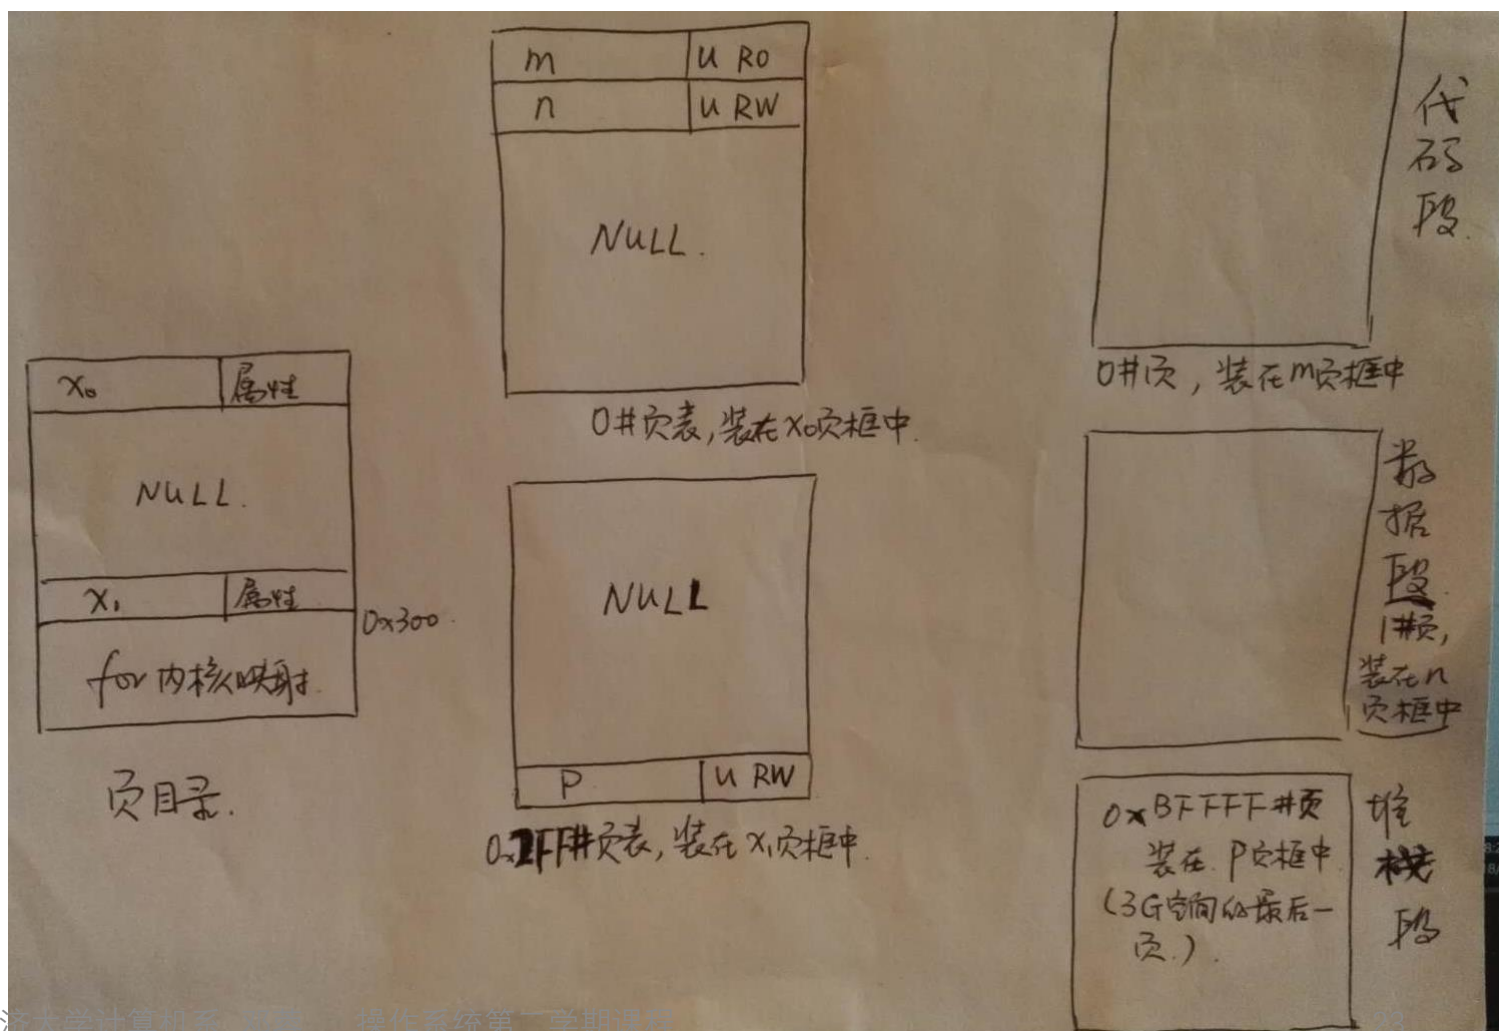 x₀ 属性
NULL.
x₁ 属性
0x300.
for内核映射.
页目录.
m U RO
n U RW
NULL.
0#页表,装在x₀页框中.
NULL
P U RW
0x2FF#页表,装在x₁页框中.
代码段.
0#页,装在m页框中
数据段.
1#页,
装在n
页框中
0xBFFFF#页
装在P页框中
(3G空间的最后一
页.).
堆栈段
济大学计算机系
操作系统第
学期课程